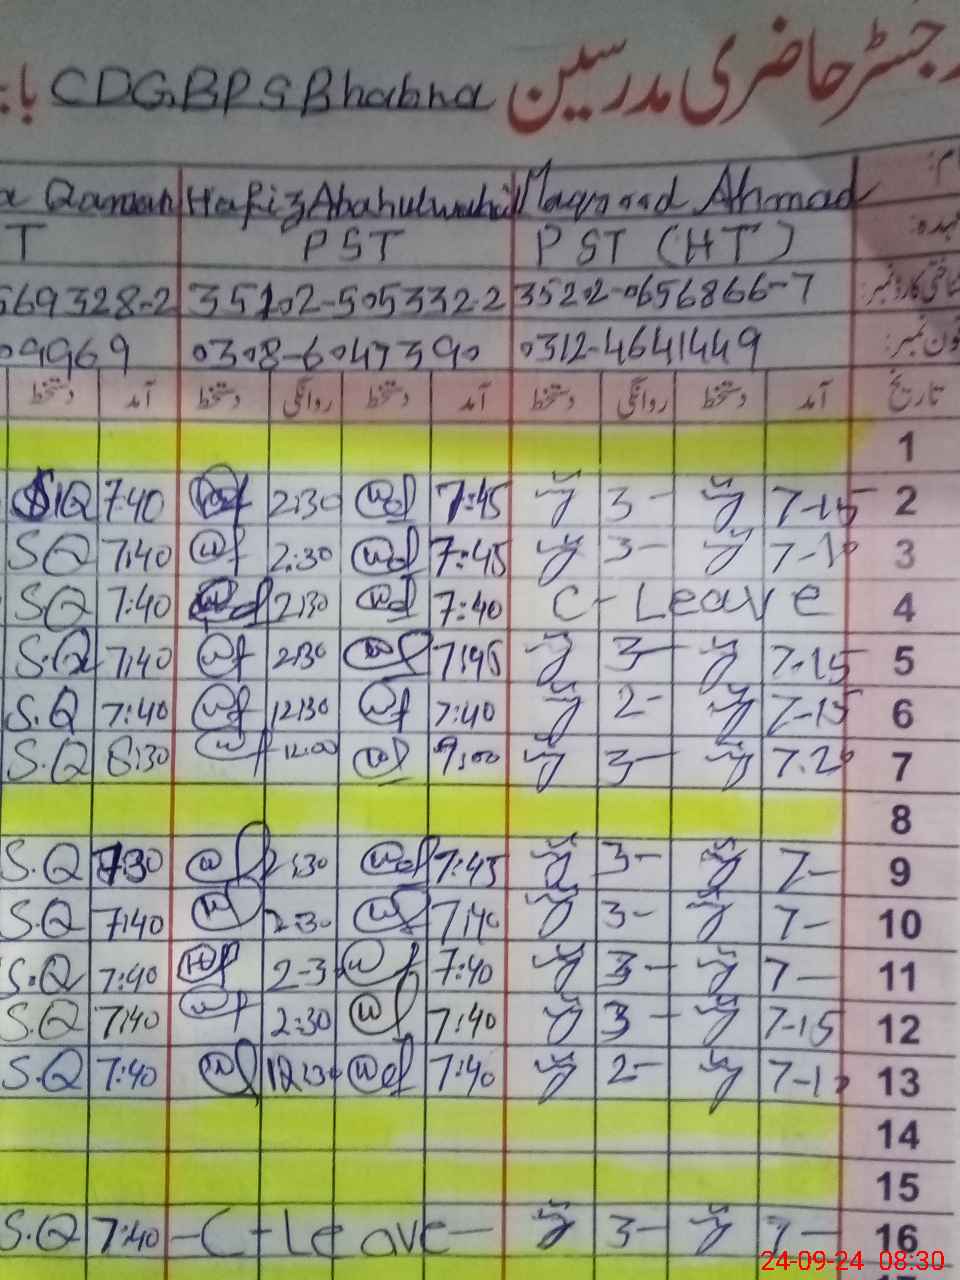 رجسٹر حاضری مدرسین CDGBPS Bhabna با
a Qamah Hafiz Maqsood Ahmad
T PST PST (HT)
569328-2 35202-505332-2 35202-0656866-7
09969 0308-6047390 0312-4641449 فون نمبر:
دستخط آمد دستخط روانگی دستخط آمد دستخط روانگی دستخط آمد تاریخ
1
SQ 7:40 2:30 7:45 3- 7-15 2
SQ 7:40 2:30 7:45 3- 7-10 3
SQ 7:40 2:30 7:40 C-Leave 4
S.Q 7:40 2:30 7:45 3- 7-15 5
S.Q 7:40 12:30 7:40 2- 7-15 6
S.Q 8:30 12:00 9:00 3- 7.20 7
8
S.Q 7:30 2:30 7:45 3- 7- 9
S.Q 7:40 2:30 7:40 3- 7- 10
S.Q 7:40 2-3 7:40 3- 7- 11
S.Q 7:40 2:30 7:40 3- 7-15 12
S.Q 7:40 12:30 7:40 2- 7-10 13
14
15
S.Q 7:40 -C-Leave- 3- 7- 16
24-09-24 08:30